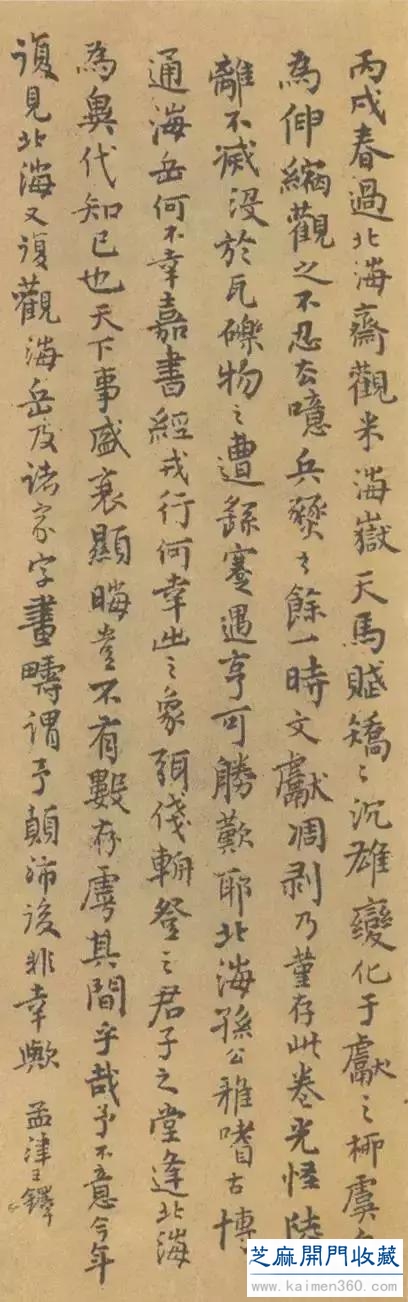 丙戌春過北海齋觀米海嶽天馬賦矯々沉雄變化于獻之柳虞
為伸縮觀之不忍去噫兵燹之餘一時文獻凋剥乃菫存此卷光怪陸
離不滅没於瓦礫物之遭蹇遇亨可勝歎耶北海孫公雅嗜古博
通海岳何不幸嘉書經戎行何幸出之象弭登之君子之堂逢北海
為異代知已也天下事盛衰顯晦豈不有數存虖其間乎哉予不意今年
復見北海又復觀海岳及諸家字畫疇謂予顛沛後非幸歟 孟津王鐸
芝麻開門收藏
www.kaimen360.com